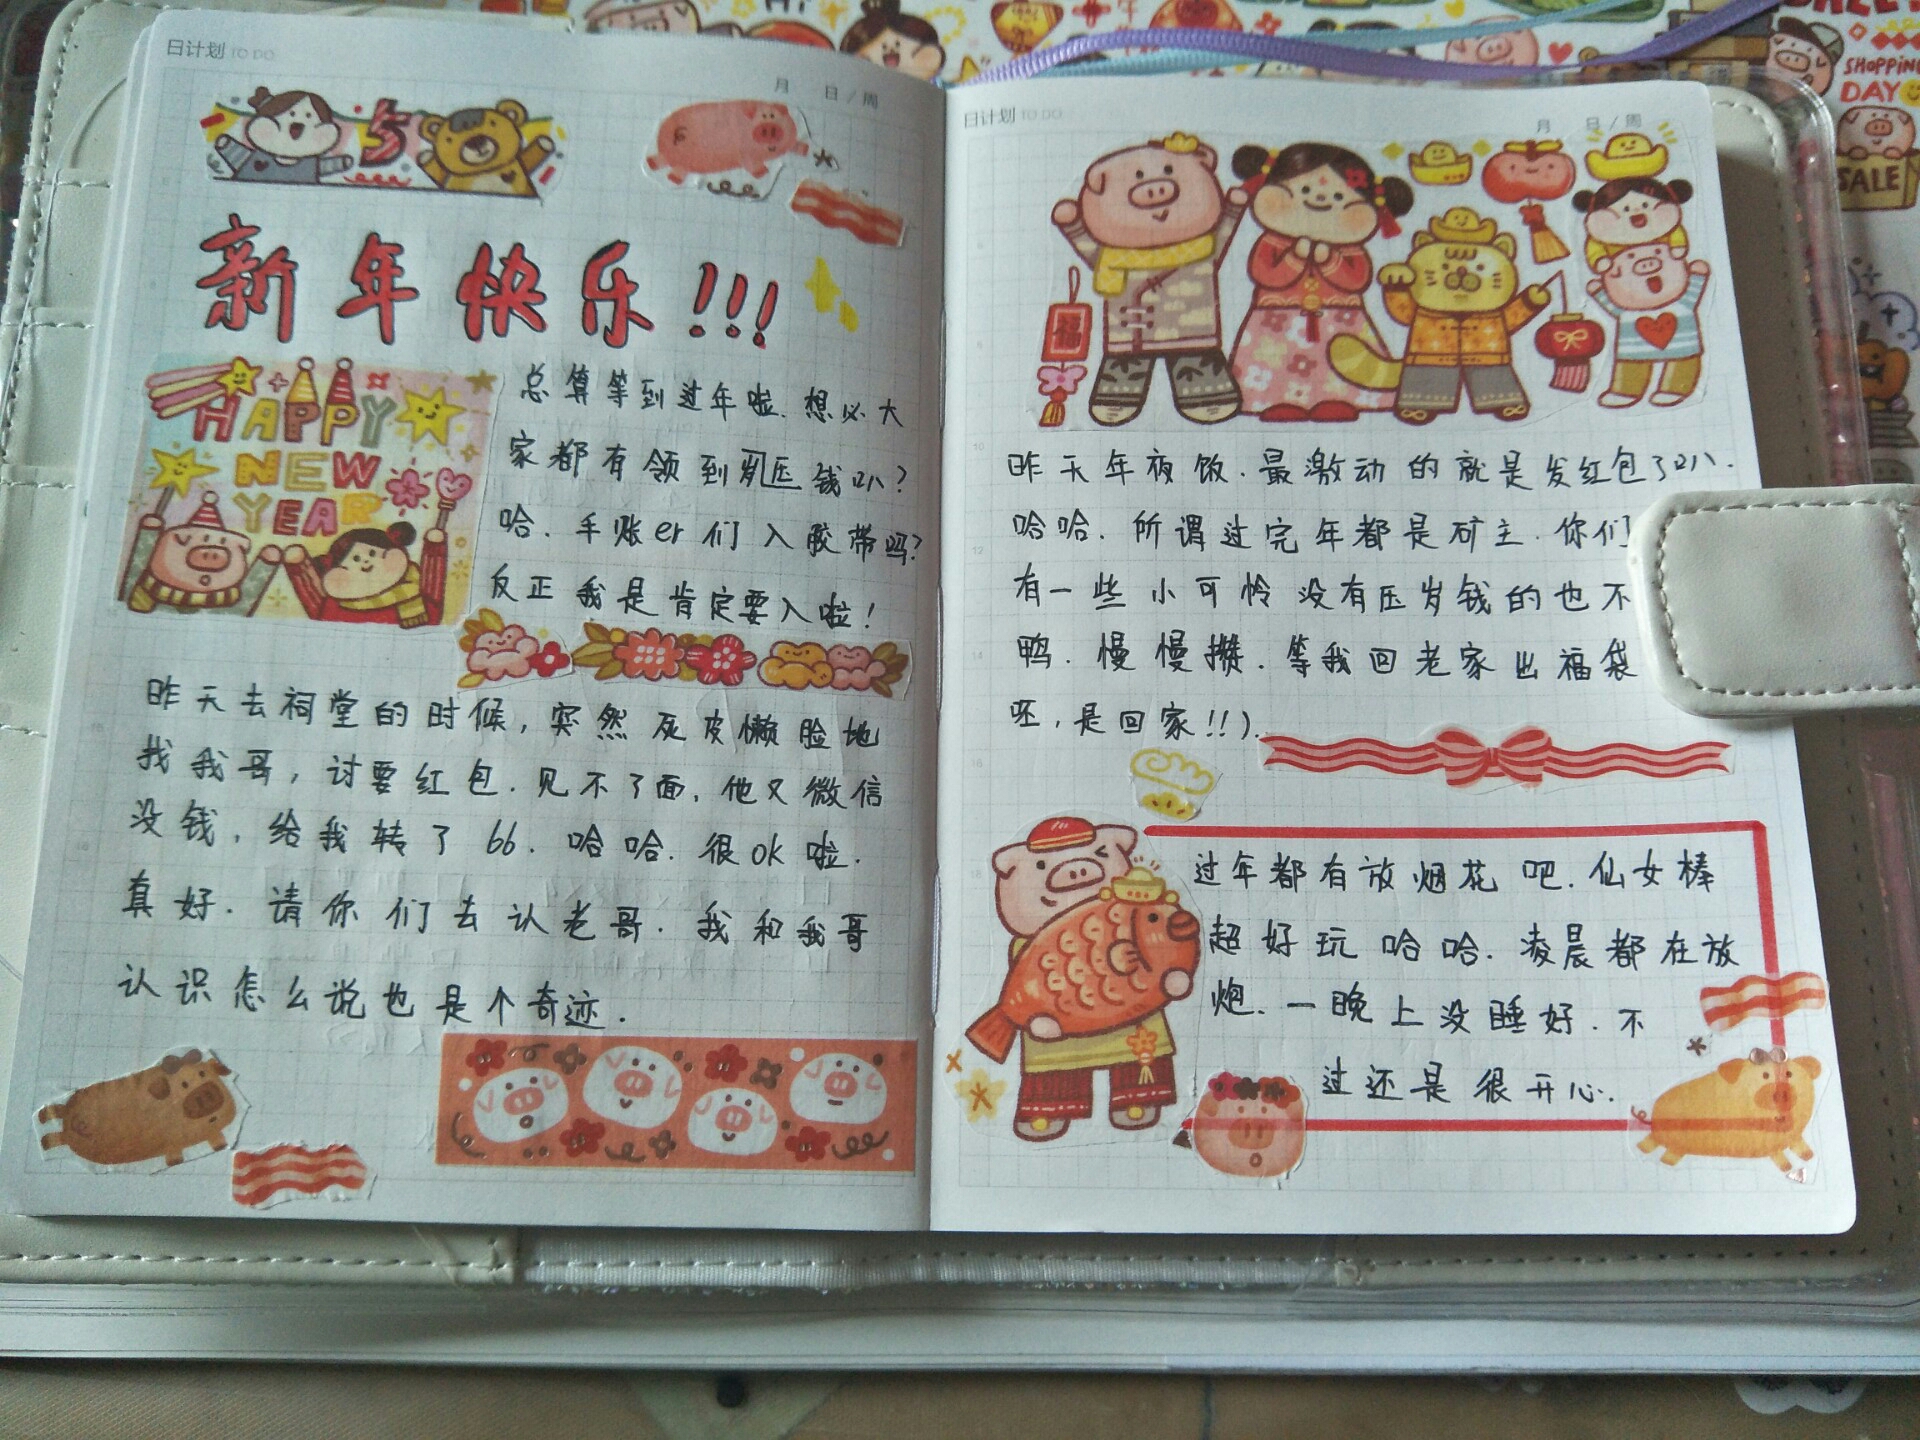 日计划 TO DO
月 日/周
5
新年快乐!!!
HAPPY
NEW
YEAR
总算等到过年啦.想必大
家都有领到压钱叭?
哈.手账er们入胶带吗?
反正我是肯定要入啦!
昨天去祠堂的时候,突然死皮懒脸地
找我哥,讨要红包.见不了面,他又微信
没钱,给我转了66.哈哈.很ok啦.
真好.请你们去认老哥.我和我哥
认识怎么说也是个奇迹.
日计划 TO DO
月 日/周
福
昨天年夜饭.最激动的就是发红包了叭.
哈哈.所谓过完年都是矿主.你们
有一些小可怜没有压岁钱的也不
鸭.慢慢攒.等我回老家出福袋
呸,是回家!!).
过年都有放烟花吧.仙女棒
超好玩哈哈.凌晨都在放
炮.一晚上没睡好.不
过还是很开心.
SHOPPING
DAY
SALE